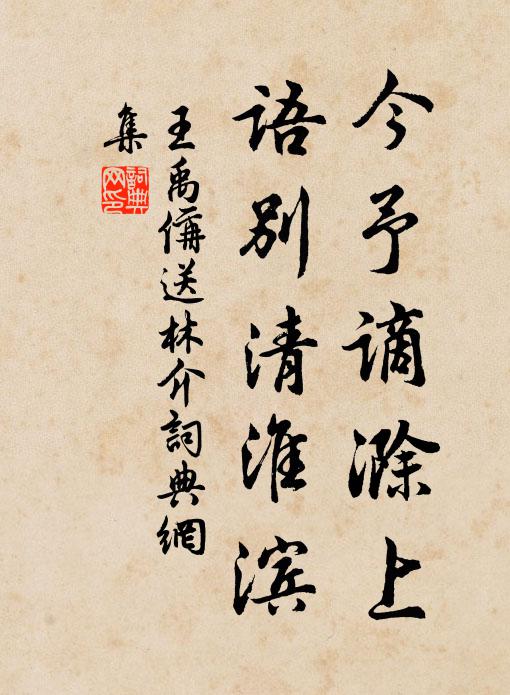 今予谪滁上
语别清淮滨
王禹偁送林介詞典網
集
詞典
网印